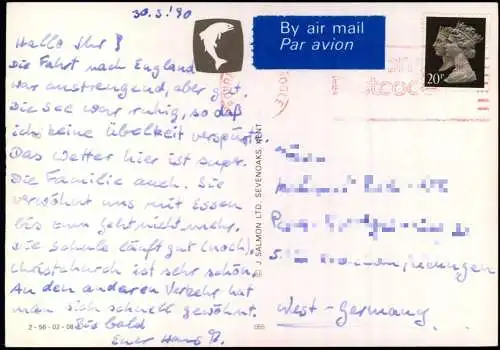 30.3.'90
Hallo Ihr!
Die Fahrt nach England
war anstrengend, aber gut.
Die See war ruhig, so daß
ich keine Übelkeit verspürte.
Das Wetter hier ist super.
Die Familie auch. Sie
verwöhnt uns mit Essen
bis zum geht nicht mehr.
Die Schule läuft gut (noch).
Christchurch ist sehr schön.
An den anderen Verkehr hat
man sich schnell gewöhnt.
Bis bald
Euer Hans
2-56-02-08
© J. SALMON LTD. SEVENOAKS, KENT
By air mail
Par avion
20P
West-Germany